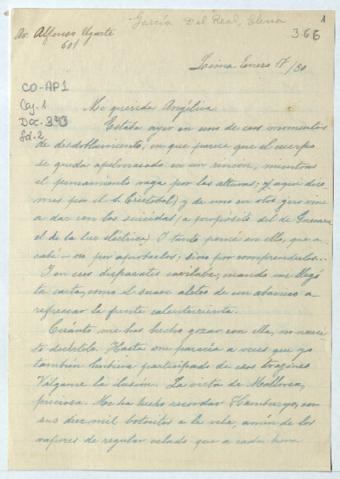 García Del Real, Elena
1
366
Av. Alfonso Ugarte
601
Lima Enero 17/30
CO-AP1
Caj. 1
Doc. 343
fol. 2
Mi querida Angélica
Estaba ayer en uno de esos momentos
de desdoblamiento, en que parece que el cuerpo
se queda apelmasado en un rincón, mientras
el pensamiento vaga por las alturas; (y aquí di
mos por el S. Cristobal) y de uno en otro giro vine
a dar con los suicidas, a propósito del de
el de la luz eléctrica. I tanto pensé en ellos, que a
cabé no por aprobarlos, sino por comprenderlos...
I en esos disparates cavilaba, cuando me llegó
tu carta, como el suave aleteo de un abanico a
refrescar la frente calenturienta.
Cuánto me has hecho gozar con ella, no nece
to decírtelo. Hasta me parecía a veces que yo
también hubiera participado de esos
Válgame la ilusión. La vista de Mallorca,
preciosa. Me ha hecho recordar Hamburgo, con
sus diez mil botecitos a la vela, amén de los
vapores de regular calado que a cada hora